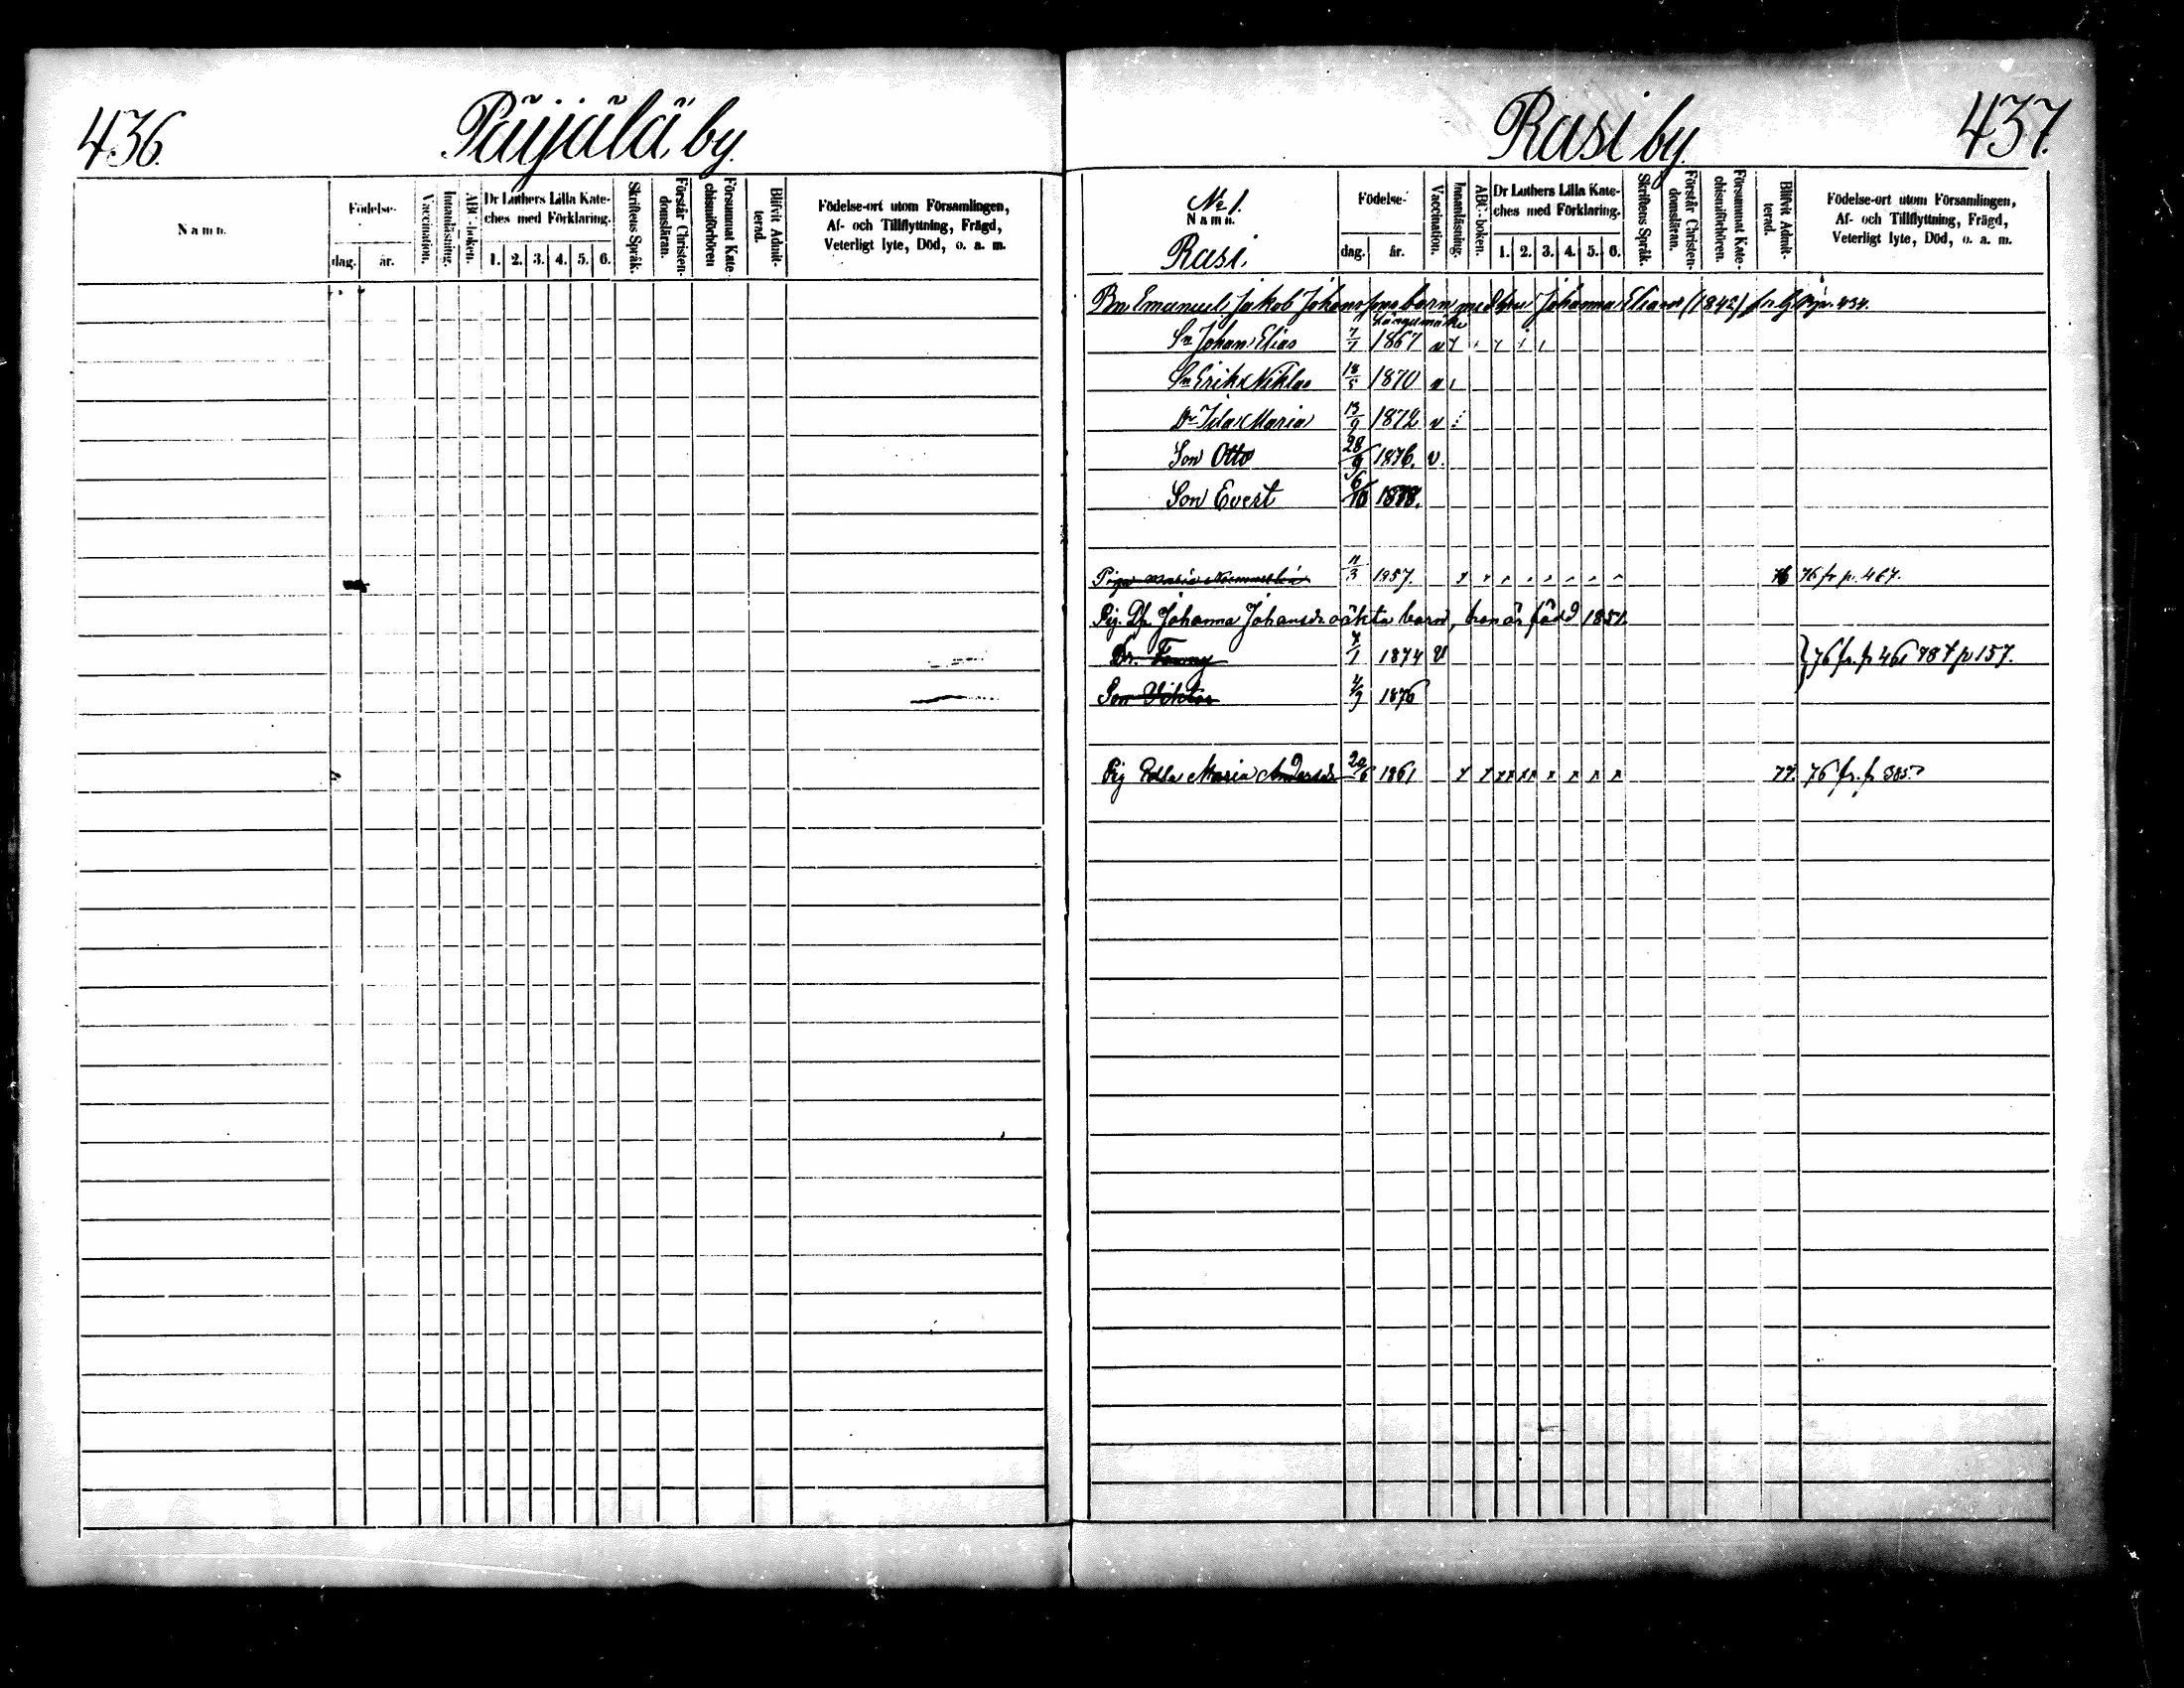 436.
Päijälä by.
Namn.
Födelse-
dag.
år.
Vaccination.
Innanläsning.
ABC-boken.
Dr Luthers Lilla Kate-
ches med Förklaring.
1. 2. 3. 4. 5. 6.
Skriftens Språk.
Förstår Christen-
domsläran.
Försummat Kate-
chismiförhören
Blifvit Admit-
terad.
Födelse-ort utom Församlingen,
Af- och Tillflyttning, Frägd,
Veterligt lyte, Död, o. a. m.
Rasi by.
437.
No 1.
Namn.
Rasi.
Födelse-
dag.
år.
Vaccination.
Innanläsning.
ABC-boken.
Dr Luthers Lilla Kate-
ches med Förklaring.
1. 2. 3. 4. 5. 6.
Skriftens Språk.
Förstår Christen-
domsläran.
Försummat Kate-
chismiförhören.
Blifvit Admit-
terad.
Födelse-ort utom Församlingen,
Af- och Tillflyttning, Frägd,
Veterligt lyte, Död, o. a. m.
Bn Emanuel Jakob Johanssons barn med Johanna (1842) 434.
Längelmäki
Sn Johan Elias 7/1 1867 v
Sn Erik Niklas 18/5 1870 v
Dr Ida Maria 13/9 1872 v
Son Otto 28/9 1876. v.
Son Evert 6/10 1878.
Piga Maria 11/3 1857. 76 76 fr p. 467.
Pig. Johanna Johansdr oäkta barn, hon är född 1851.
Dr. Fanny 7/1 1874 v } 76 fr. p 461 78 t p 157.
Son Viktor 4/9 1876
Pig Edla Maria Andersdr 20/6 1861 77. 76 fr. p 385